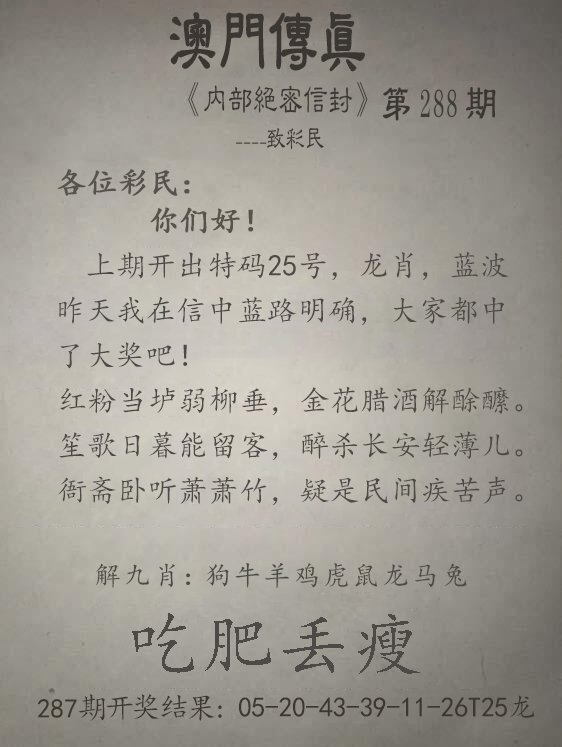 澳門傳眞
《内部絕密信封》第288期
----致彩民
各位彩民：
你们好！
上期开出特码25号，龙肖，蓝波
昨天我在信中蓝路明确，大家都中
了大奖吧！
红粉当垆弱柳垂，金花腊酒解酴醾。
笙歌日暮能留客，醉杀长安轻薄儿。
衙斋卧听萧萧竹，疑是民间疾苦声。
解九肖：狗牛羊鸡虎鼠龙马兔
吃肥丢瘦
287期开奖结果：05-20-43-39-11-26T25龙